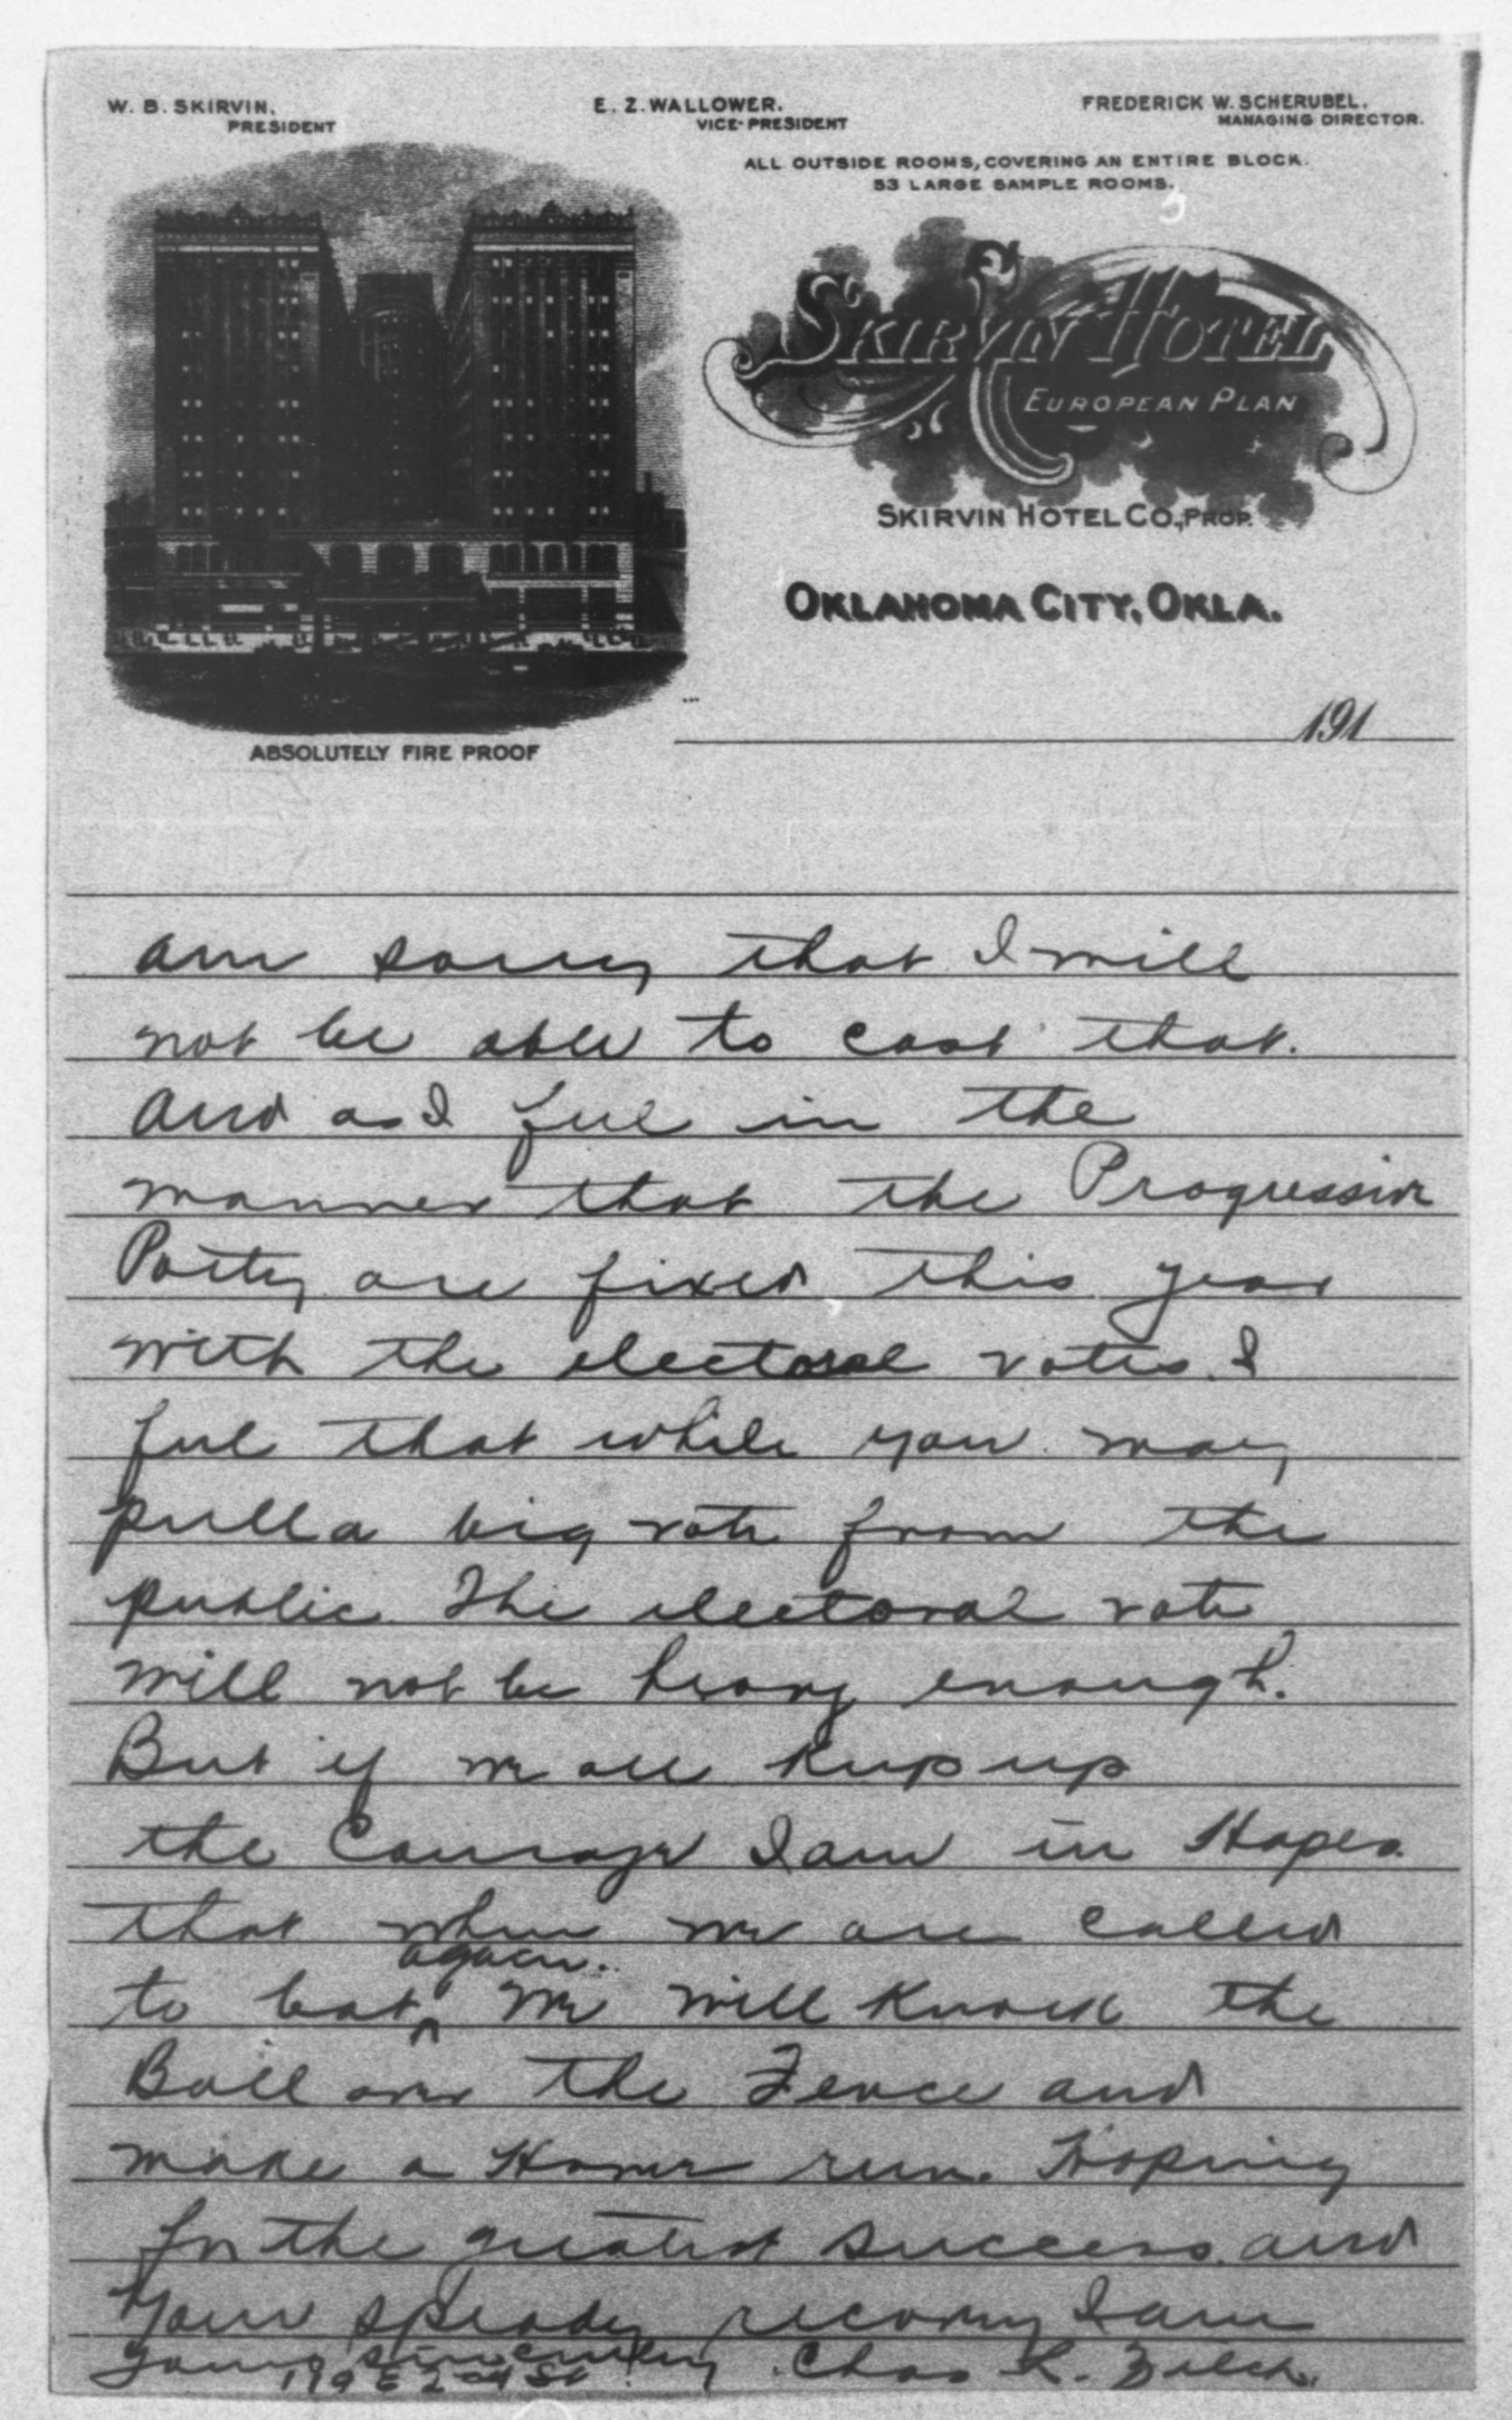 W. B. SKIRVIN,
PRESIDENT
E. Z. WALLOWER.
VICE-PRESIDENT
FREDERICK W. SCHERUBEL.
MANAGING DIRECTOR.
ALL OUTSIDE ROOMS, COVERING AN ENTIRE BLOCK.
53 LARGE SAMPLE ROOMS.
SKIRVIN HOTEL
EUROPEAN PLAN
SKIRVIN HOTEL CO., PROP.
OKLAHOMA CITY, OKLA.
191
ABSOLUTELY FIRE PROOF
am sorry that I will
not be able to cast that.
and as I feel in the
manner that the Progressive
Party are fixed this year
with the electoral votes. I
feel that while you may
pull a big vote from the
public. The electoral vote
will not be heavy enough.
But if we all keep up
the Courage I am in Hopes
that when we are called
again.
to bat ^ we will knock the
Ball over the Fence and
make a Home run. Hoping
for the greatest success. and
Your speady recovery I am
yours sincerely Chas L. Zilch.
E 2nd St.